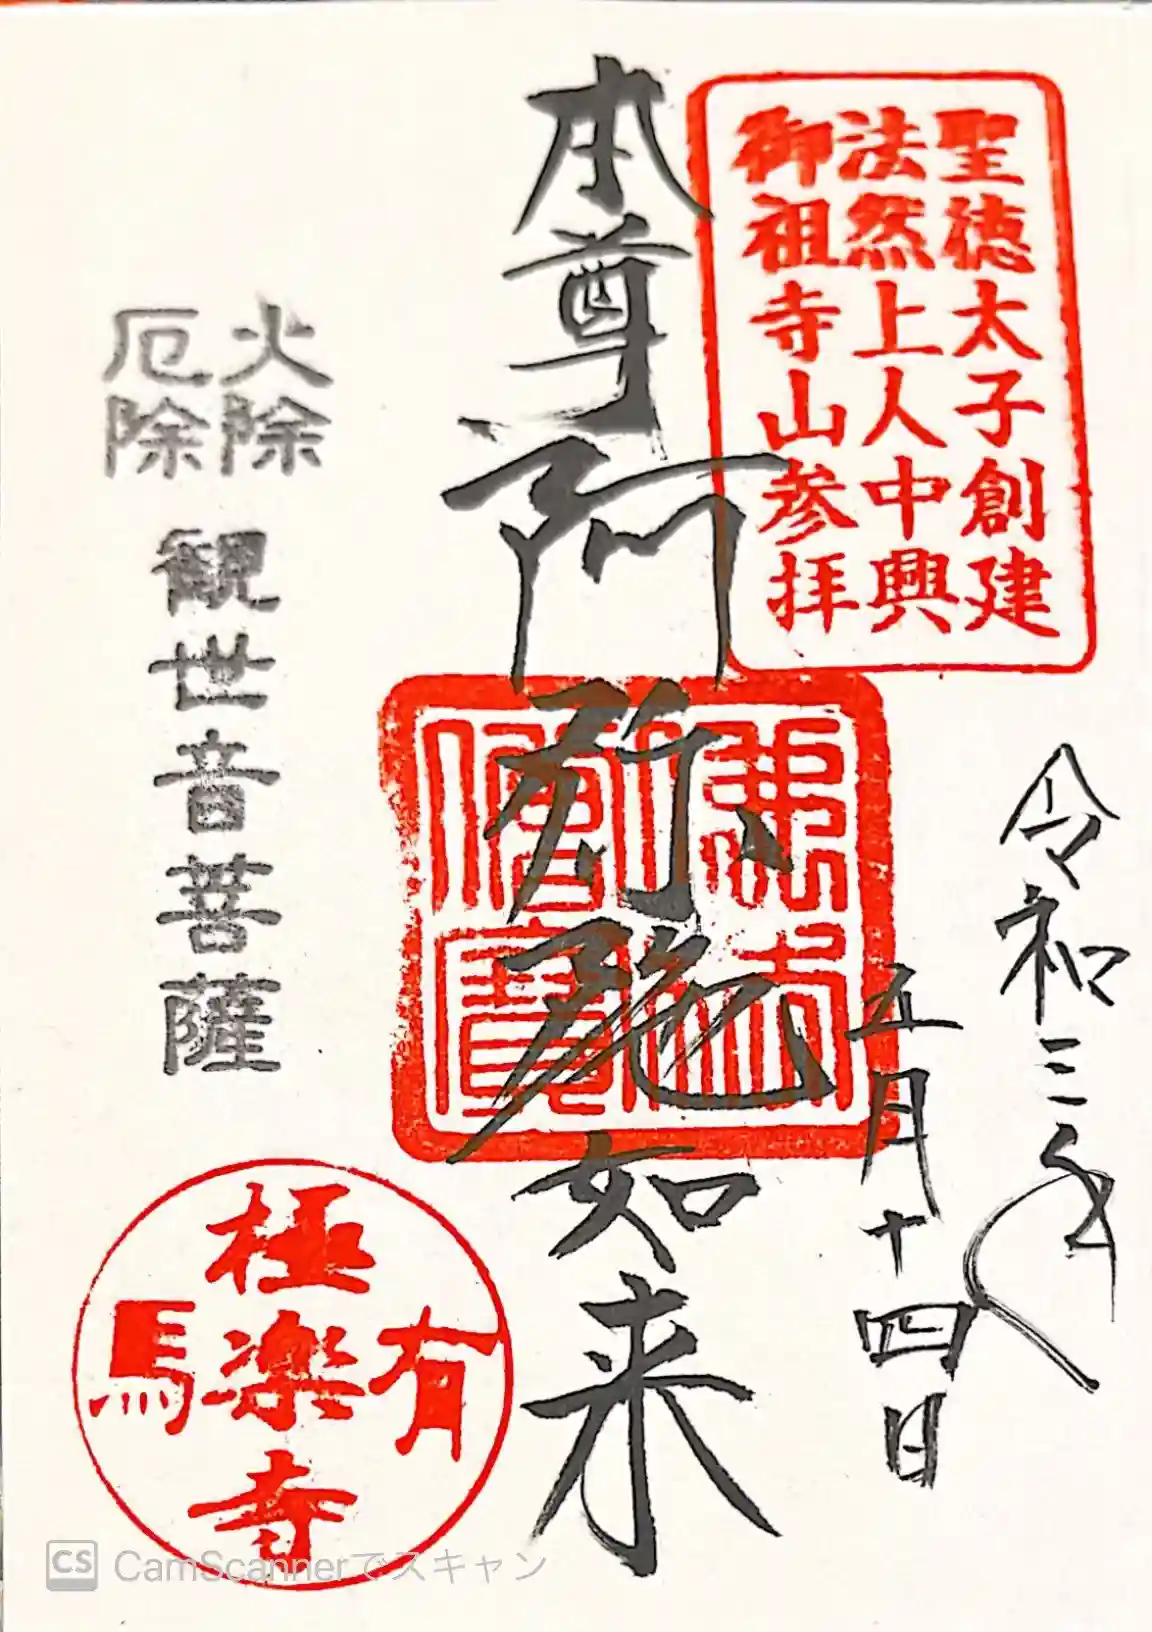 聖徳太子創建
法然上人中興
御祖寺山参拝
令和三年
五月十四日
本尊阿弥陀如来
佛法僧寳
火除
厄除
観世音菩薩
有馬
極楽寺
CS CamScannerでスキャン